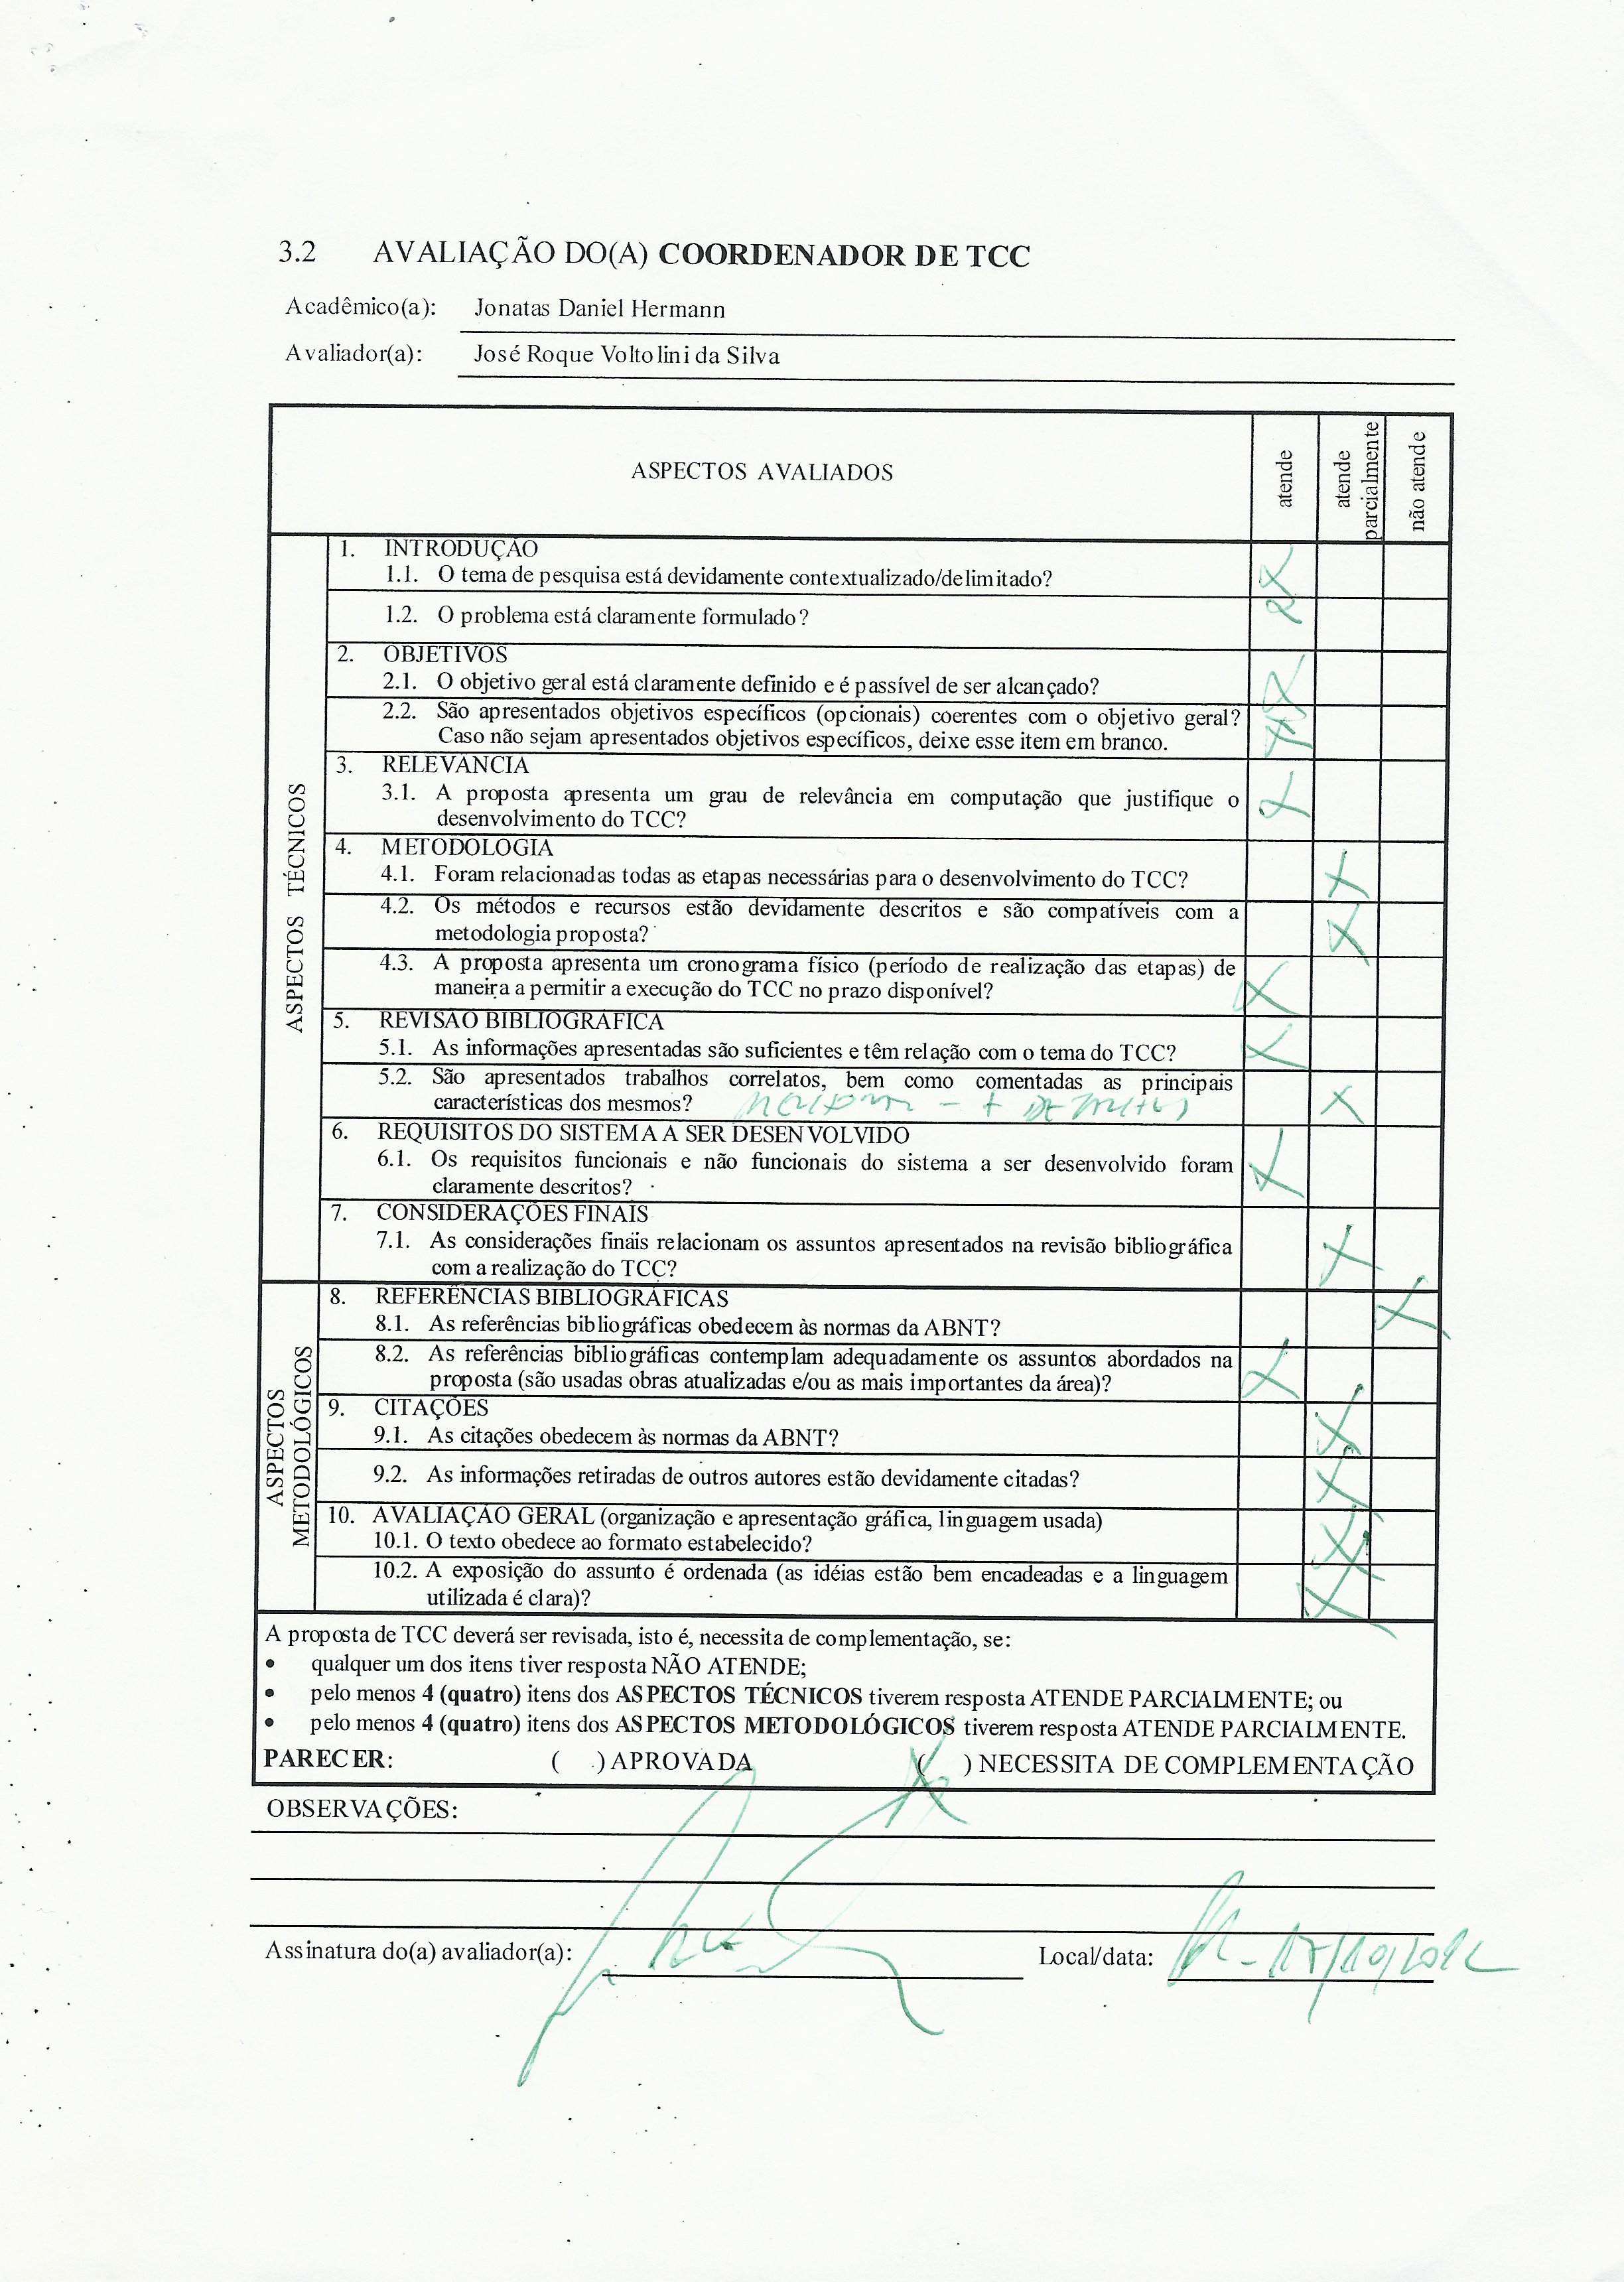 3.2 AVALIAÇÃO DO(A) COORDENADOR DE TCC
Acadêmico(a): Jonatas Daniel Hermann
Avaliador(a): José Roque Voltolini da Silva
ASPECTOS AVALIADOS
atende
atende parcialmente
não atende
ASPECTOS TÉCNICOS
1. INTRODUÇÃO
1.1. O tema de pesquisa está devidamente contextualizado/delimitado?
1.2. O problema está claramente formulado?
2. OBJETIVOS
2.1. O objetivo geral está claramente definido e é passível de ser alcançado?
2.2. São apresentados objetivos específicos (opcionais) coerentes com o objetivo geral?
Caso não sejam apresentados objetivos específicos, deixe esse item em branco.
3. RELEVÂNCIA
3.1. A proposta apresenta um grau de relevância em computação que justifique o
desenvolvimento do TCC?
4. METODOLOGIA
4.1. Foram relacionadas todas as etapas necessárias para o desenvolvimento do TCC?
4.2. Os métodos e recursos estão devidamente descritos e são compatíveis com a
metodologia proposta?
4.3. A proposta apresenta um cronograma físico (período de realização das etapas) de
maneira a permitir a execução do TCC no prazo disponível?
5. REVISÃO BIBLIOGRÁFICA
5.1. As informações apresentadas são suficientes e têm relação com o tema do TCC?
5.2. São apresentados trabalhos correlatos, bem como comentadas as principais
características dos mesmos?
6. REQUISITOS DO SISTEMA A SER DESENVOLVIDO
6.1. Os requisitos funcionais e não funcionais do sistema a ser desenvolvido foram
claramente descritos?
7. CONSIDERAÇÕES FINAIS
7.1. As considerações finais relacionam os assuntos apresentados na revisão bibliográfica
com a realização do TCC?
ASPECTOS METODOLÓGICOS
8. REFERÊNCIAS BIBLIOGRÁFICAS
8.1. As referências bibliográficas obedecem às normas da ABNT?
8.2. As referências bibliográficas contemplam adequadamente os assuntos abordados na
proposta (são usadas obras atualizadas e/ou as mais importantes da área)?
9. CITAÇÕES
9.1. As citações obedecem às normas da ABNT?
9.2. As informações retiradas de outros autores estão devidamente citadas?
10. AVALIAÇÃO GERAL (organização e apresentação gráfica, linguagem usada)
10.1. O texto obedece ao formato estabelecido?
10.2. A exposição do assunto é ordenada (as idéias estão bem encadeadas e a linguagem
utilizada é clara)?
A proposta de TCC deverá ser revisada, isto é, necessita de complementação, se:
• qualquer um dos itens tiver resposta NÃO ATENDE;
• pelo menos 4 (quatro) itens dos ASPECTOS TÉCNICOS tiverem resposta ATENDE PARCIALMENTE; ou
• pelo menos 4 (quatro) itens dos ASPECTOS METODOLÓGICOS tiverem resposta ATENDE PARCIALMENTE.
PARECER: ( ) APROVADA (X) NECESSITA DE COMPLEMENTAÇÃO
OBSERVAÇÕES:
Assinatura do(a) avaliador(a): Local/data: 17/10/2012